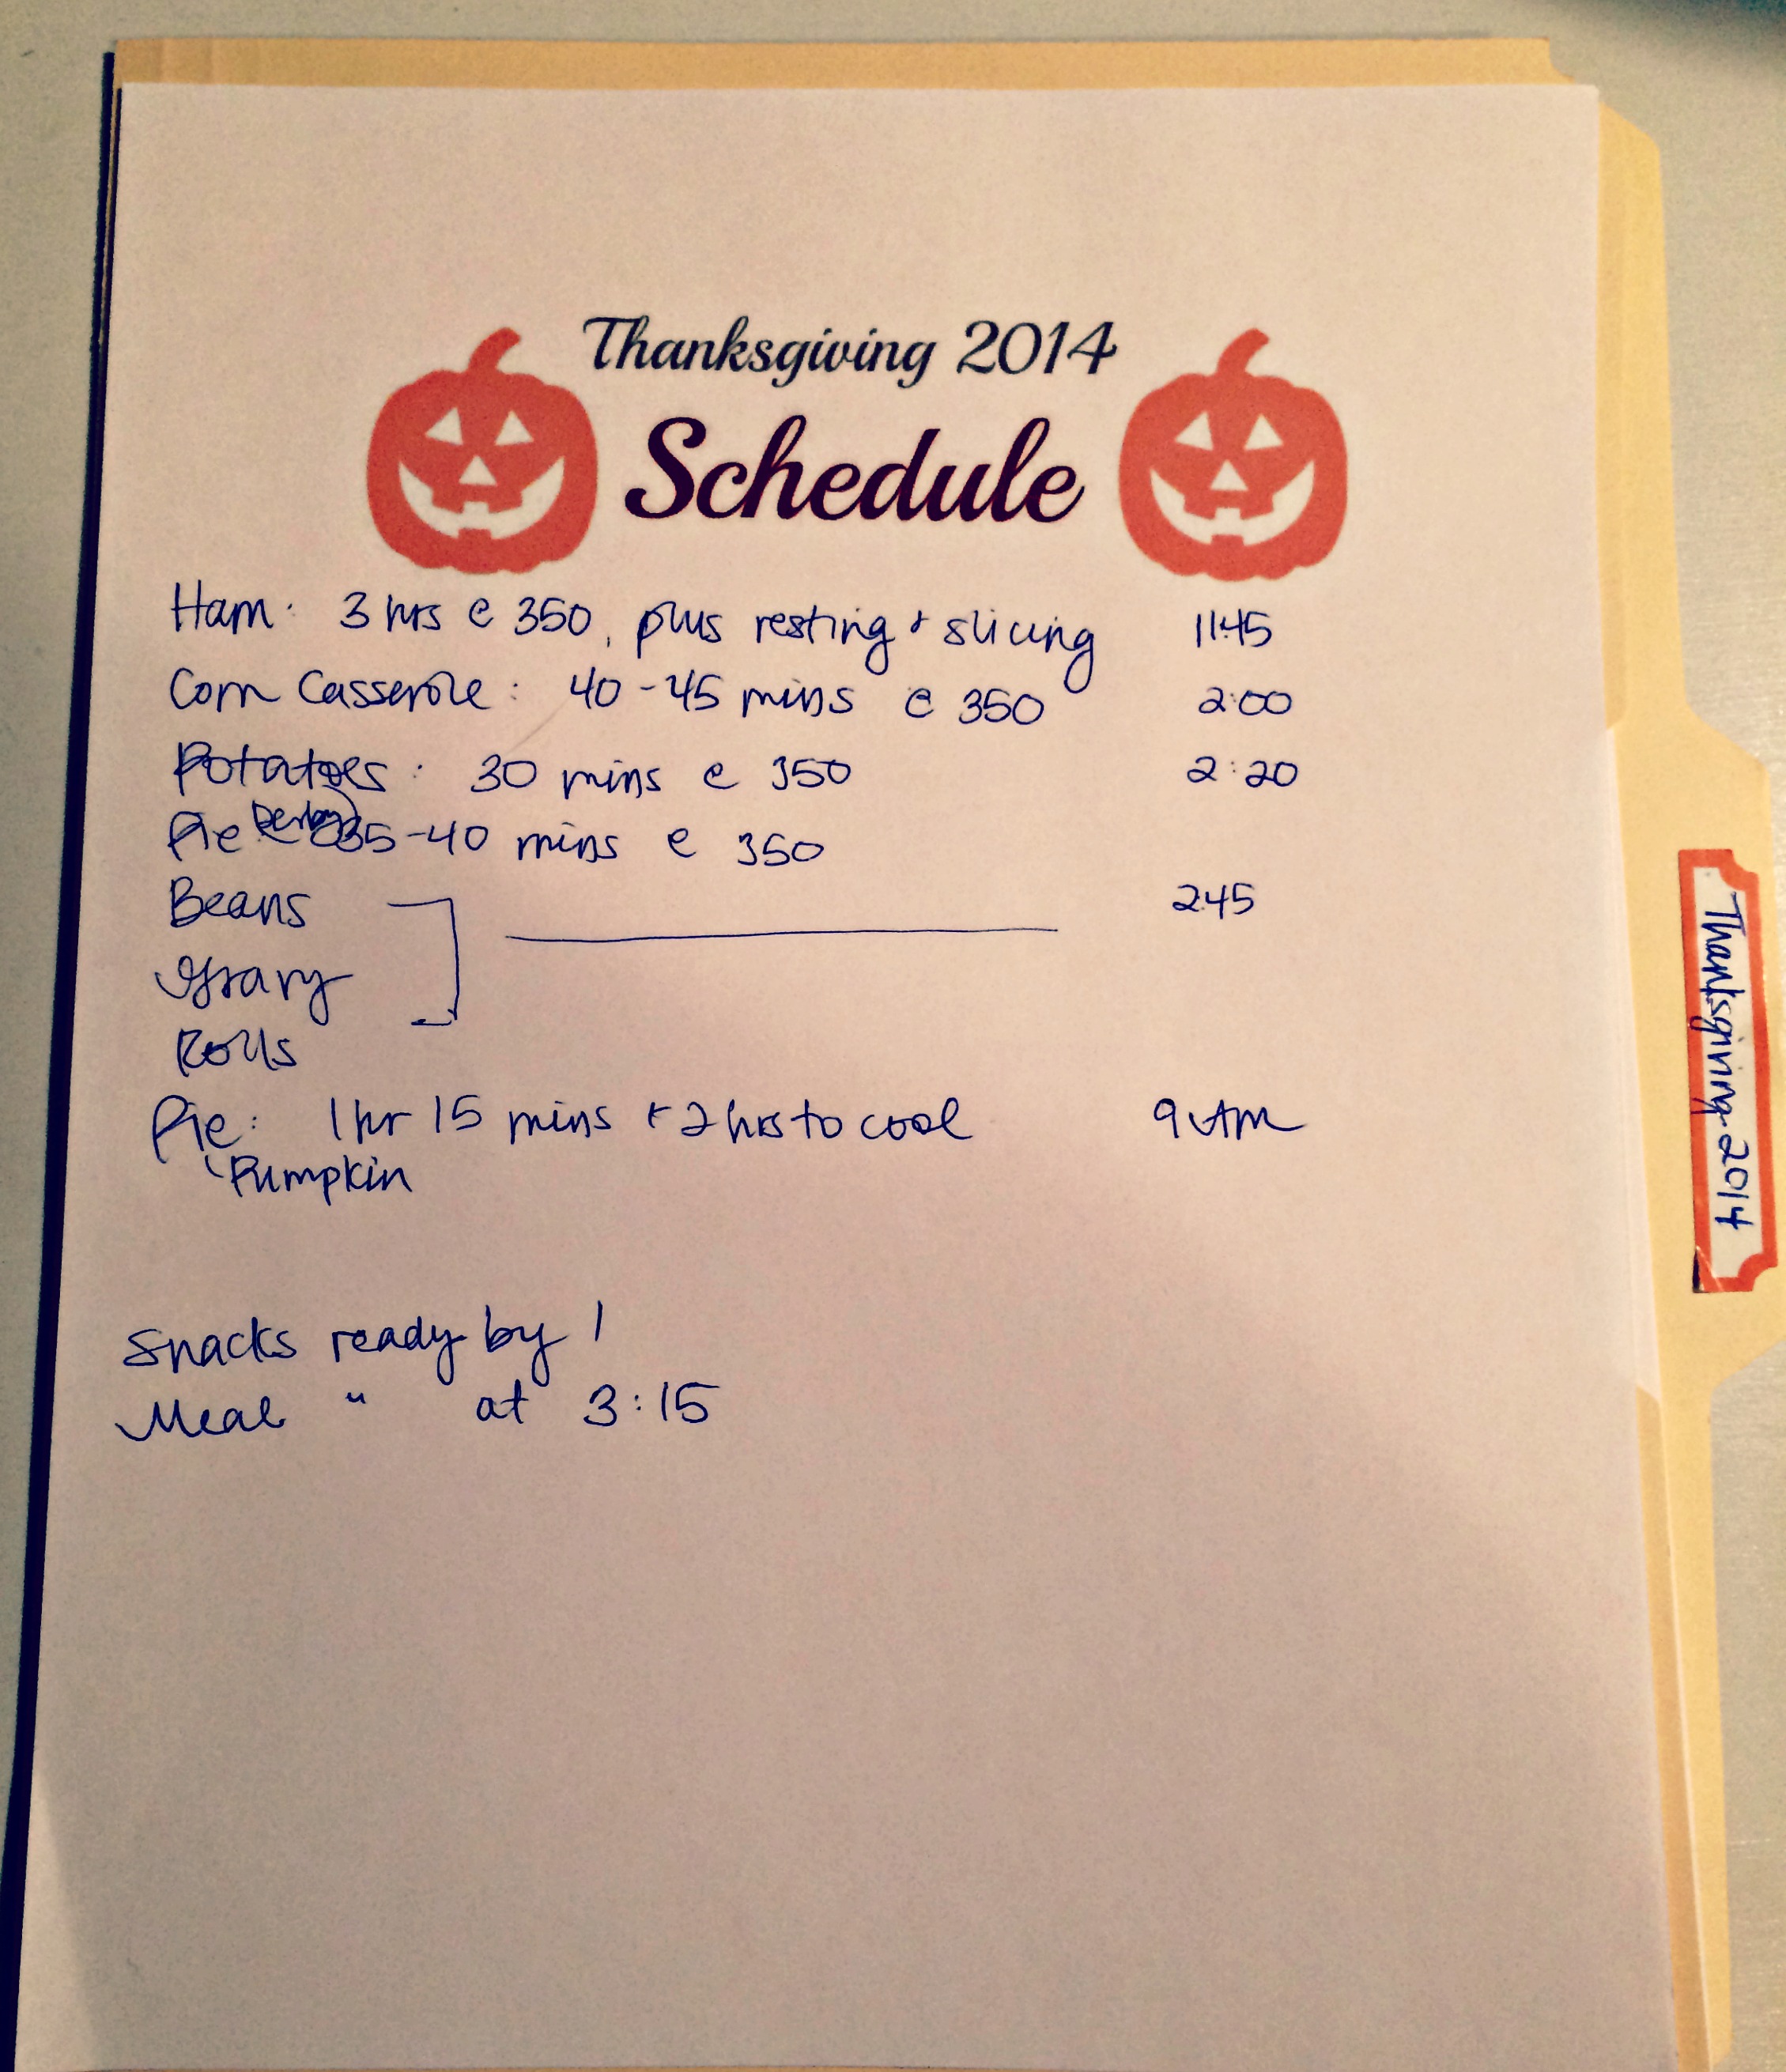 Thanksgiving 2014
Schedule
Ham: 3 hrs @ 350, plus resting + slicing 11:45
Corn Casserole: 40-45 mins @ 350 2:00
Potatoes: 30 mins @ 350 2:20
Pie (Derby) 35-40 mins @ 350
Beans 2:45
Gravy
Rolls
Pie: 1 hr 15 mins + 2 hrs to cool 9 AM
Pumpkin
Snacks ready by 1
Meal " at 3:15
Thanksgiving-2014